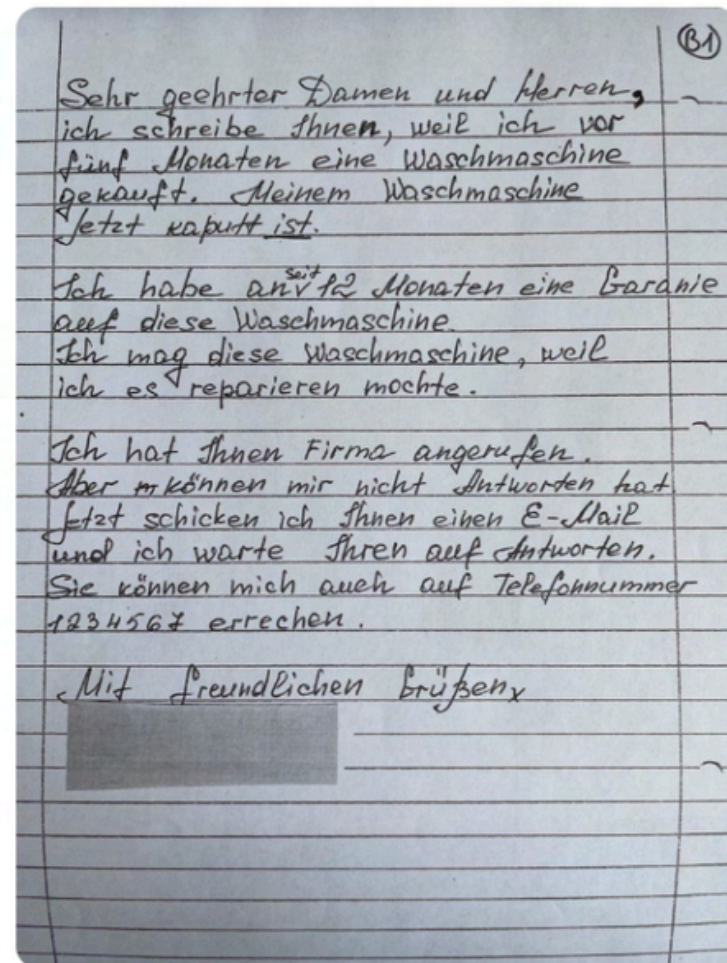 B1
Sehr geehrter Damen und Herren,
ich schreibe Ihnen, weil ich vor
fünf Monaten eine Waschmaschine
gekauft. Meinem Waschmaschine
Jetzt kaputt ist.
Ich habe an seit 12 Monaten eine Garanie
auf diese Waschmaschine.
Ich mag diese Waschmaschine, weil
ich es reparieren mochte.
Ich hat Ihnen Firma angerufen.
Aber können mir nicht Antworten hat
Jetzt schicken ich Ihnen einen E-Mail
und ich warte Ihren auf Antworten.
Sie können mich auch auf Telefonnummer
1234567 errechen.
Mit freundlichen Grüßen